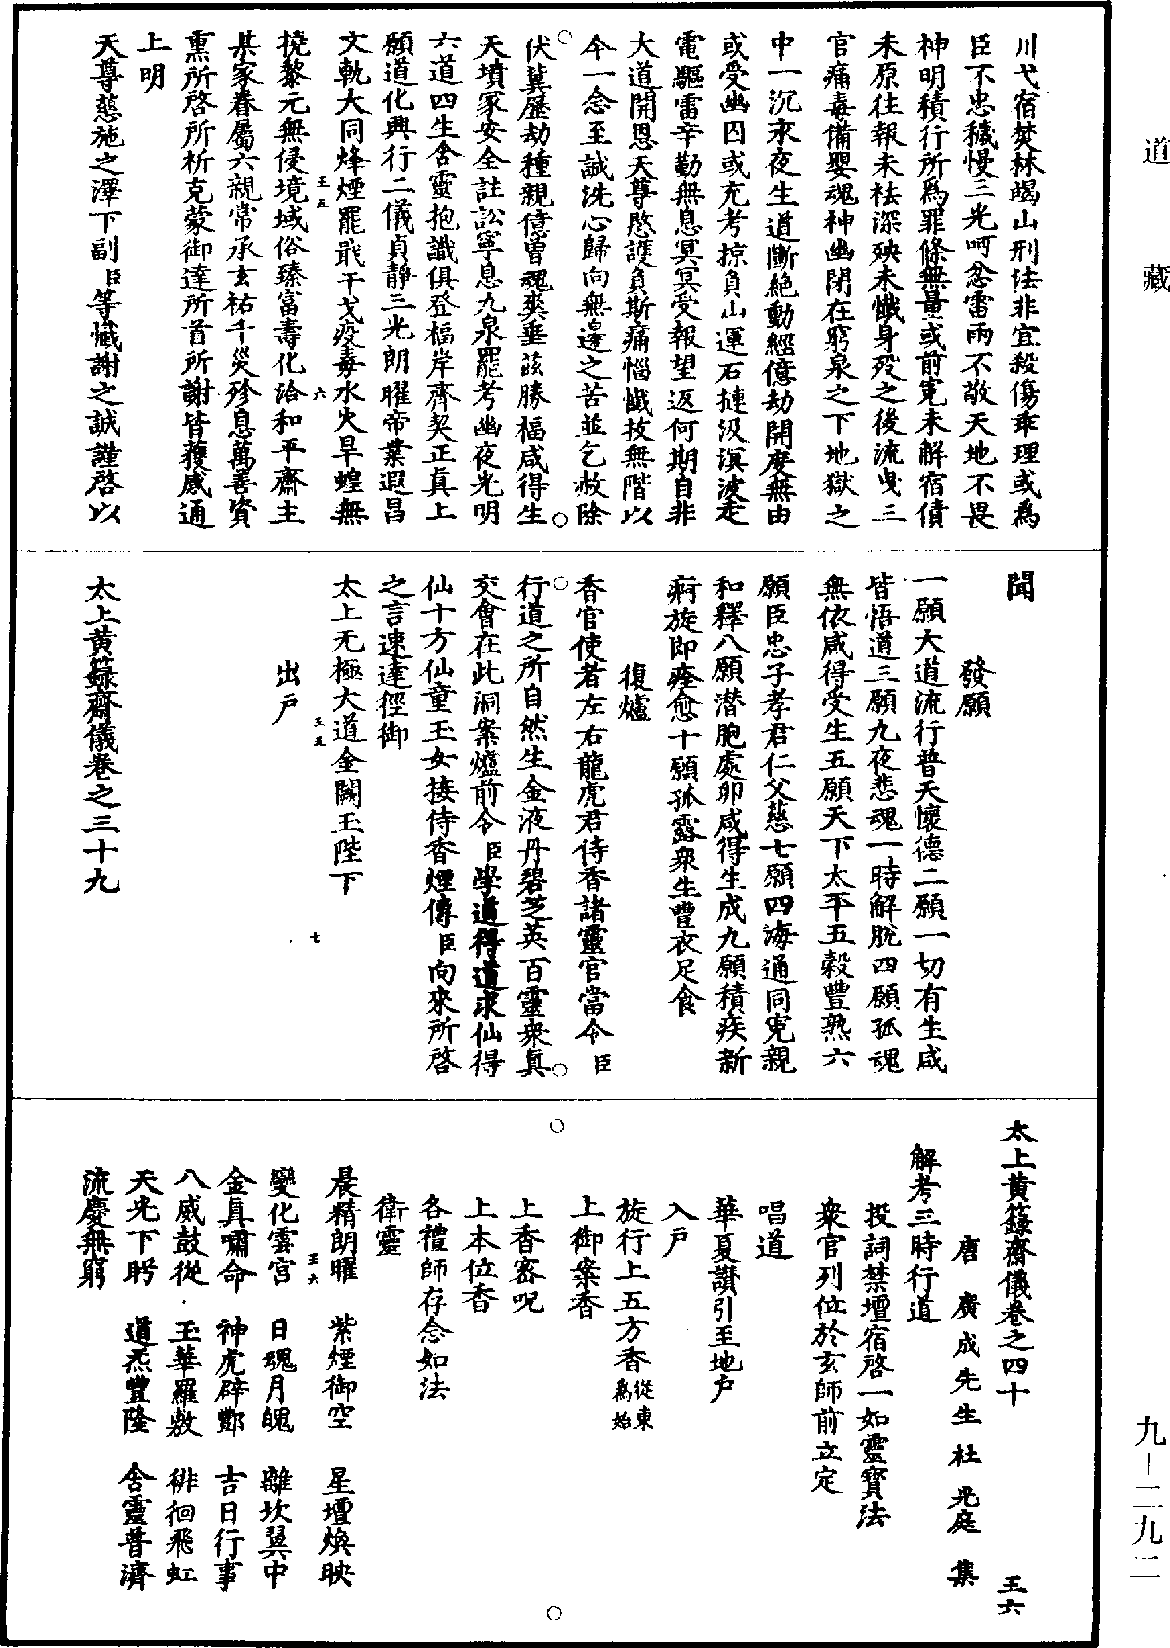 道藏
川弋宿焚林竭山刑法非宜殺傷乖理或為
臣不忠穢慢三光呵忿雷雨不敬天地不畏
神明積行所為罪條無量或前冤未解宿債
未原往報未祛深殃未懺身歿之後流曳三
官痛毒備嬰魂神幽閉在窮泉之下地獄之
中一沉永夜生道斷絕動經億劫開度無由
或受幽囚或充考掠負山運石揵汲溟波走
電驅雷辛勤無息冥冥受報望返何期自非
大道開恩天尊愍護負斯痛惱懺拔無階以
今一念至誠洗心歸向無邊之苦並乞赦除
伏冀歷劫種親億曾魂爽垂茲勝福咸得生
天墳冢安全註訟寧息九泉罷考幽夜光明
六道四生含靈抱識俱登福岸齊契正真上
願道化興行二儀貞靜三光朗曜帝業遐昌
文軌大同烽煙罷戢干戈疫毒水火旱蝗無
王五 六
撓黎元無侵境域俗臻富壽化洽和平齋主
某家眷屬六親常承玄祐千災殄息萬善資
熏所啓所祈克蒙御達所首所謝皆獲感通
上明
天尊慈施之澤下副臣等懺謝之誠謹啓以
聞
發願
一願大道流行普天懷德二願一切有生咸
皆悟道三願九夜悲魂一時解脫四願孤魂
無依咸得受生五願天下太平五穀豐熟六
願臣忠子孝君仁父慈七願四海通同冤親
和釋八願潛胞處卵咸得生成九願積疾新
痾旋即痊愈十願孤露衆生豐衣足食
復爐
香官使者左右龍虎君侍香諸靈官當令臣
行道之所自然生金液丹碧芝英百靈衆真
交會在此洞案爐前令臣學道得道求仙得
仙十方仙童玉女接侍香煙傳臣向來所啓
之言速達徑御
太上无極大道金闕玉陛下
王五 七
出戶
太上黃籙齋儀卷之三十九
太上黃籙齋儀卷之四十 王六
唐廣成先生杜光庭集
解考三時行道
投詞禁壇宿啓一如靈寶法
衆官列位於玄師前立定
唱道
華夏讚引至地戶
入戶
旋行上五方香從東為始
上御案香
上香密呪
上本位香
各禮師存念如法
衛靈
晨精朗曜 紫煙御空 星壇煥映
王六
變化雲宮 日魂月魄 離坎翼中
金真嘯命 神虎辟酆 吉日行事
八威鼓從 玉華羅敷 徘徊飛虹
天光下眄 道炁豐隆 含靈普濟
流慶無窮
九－二九二